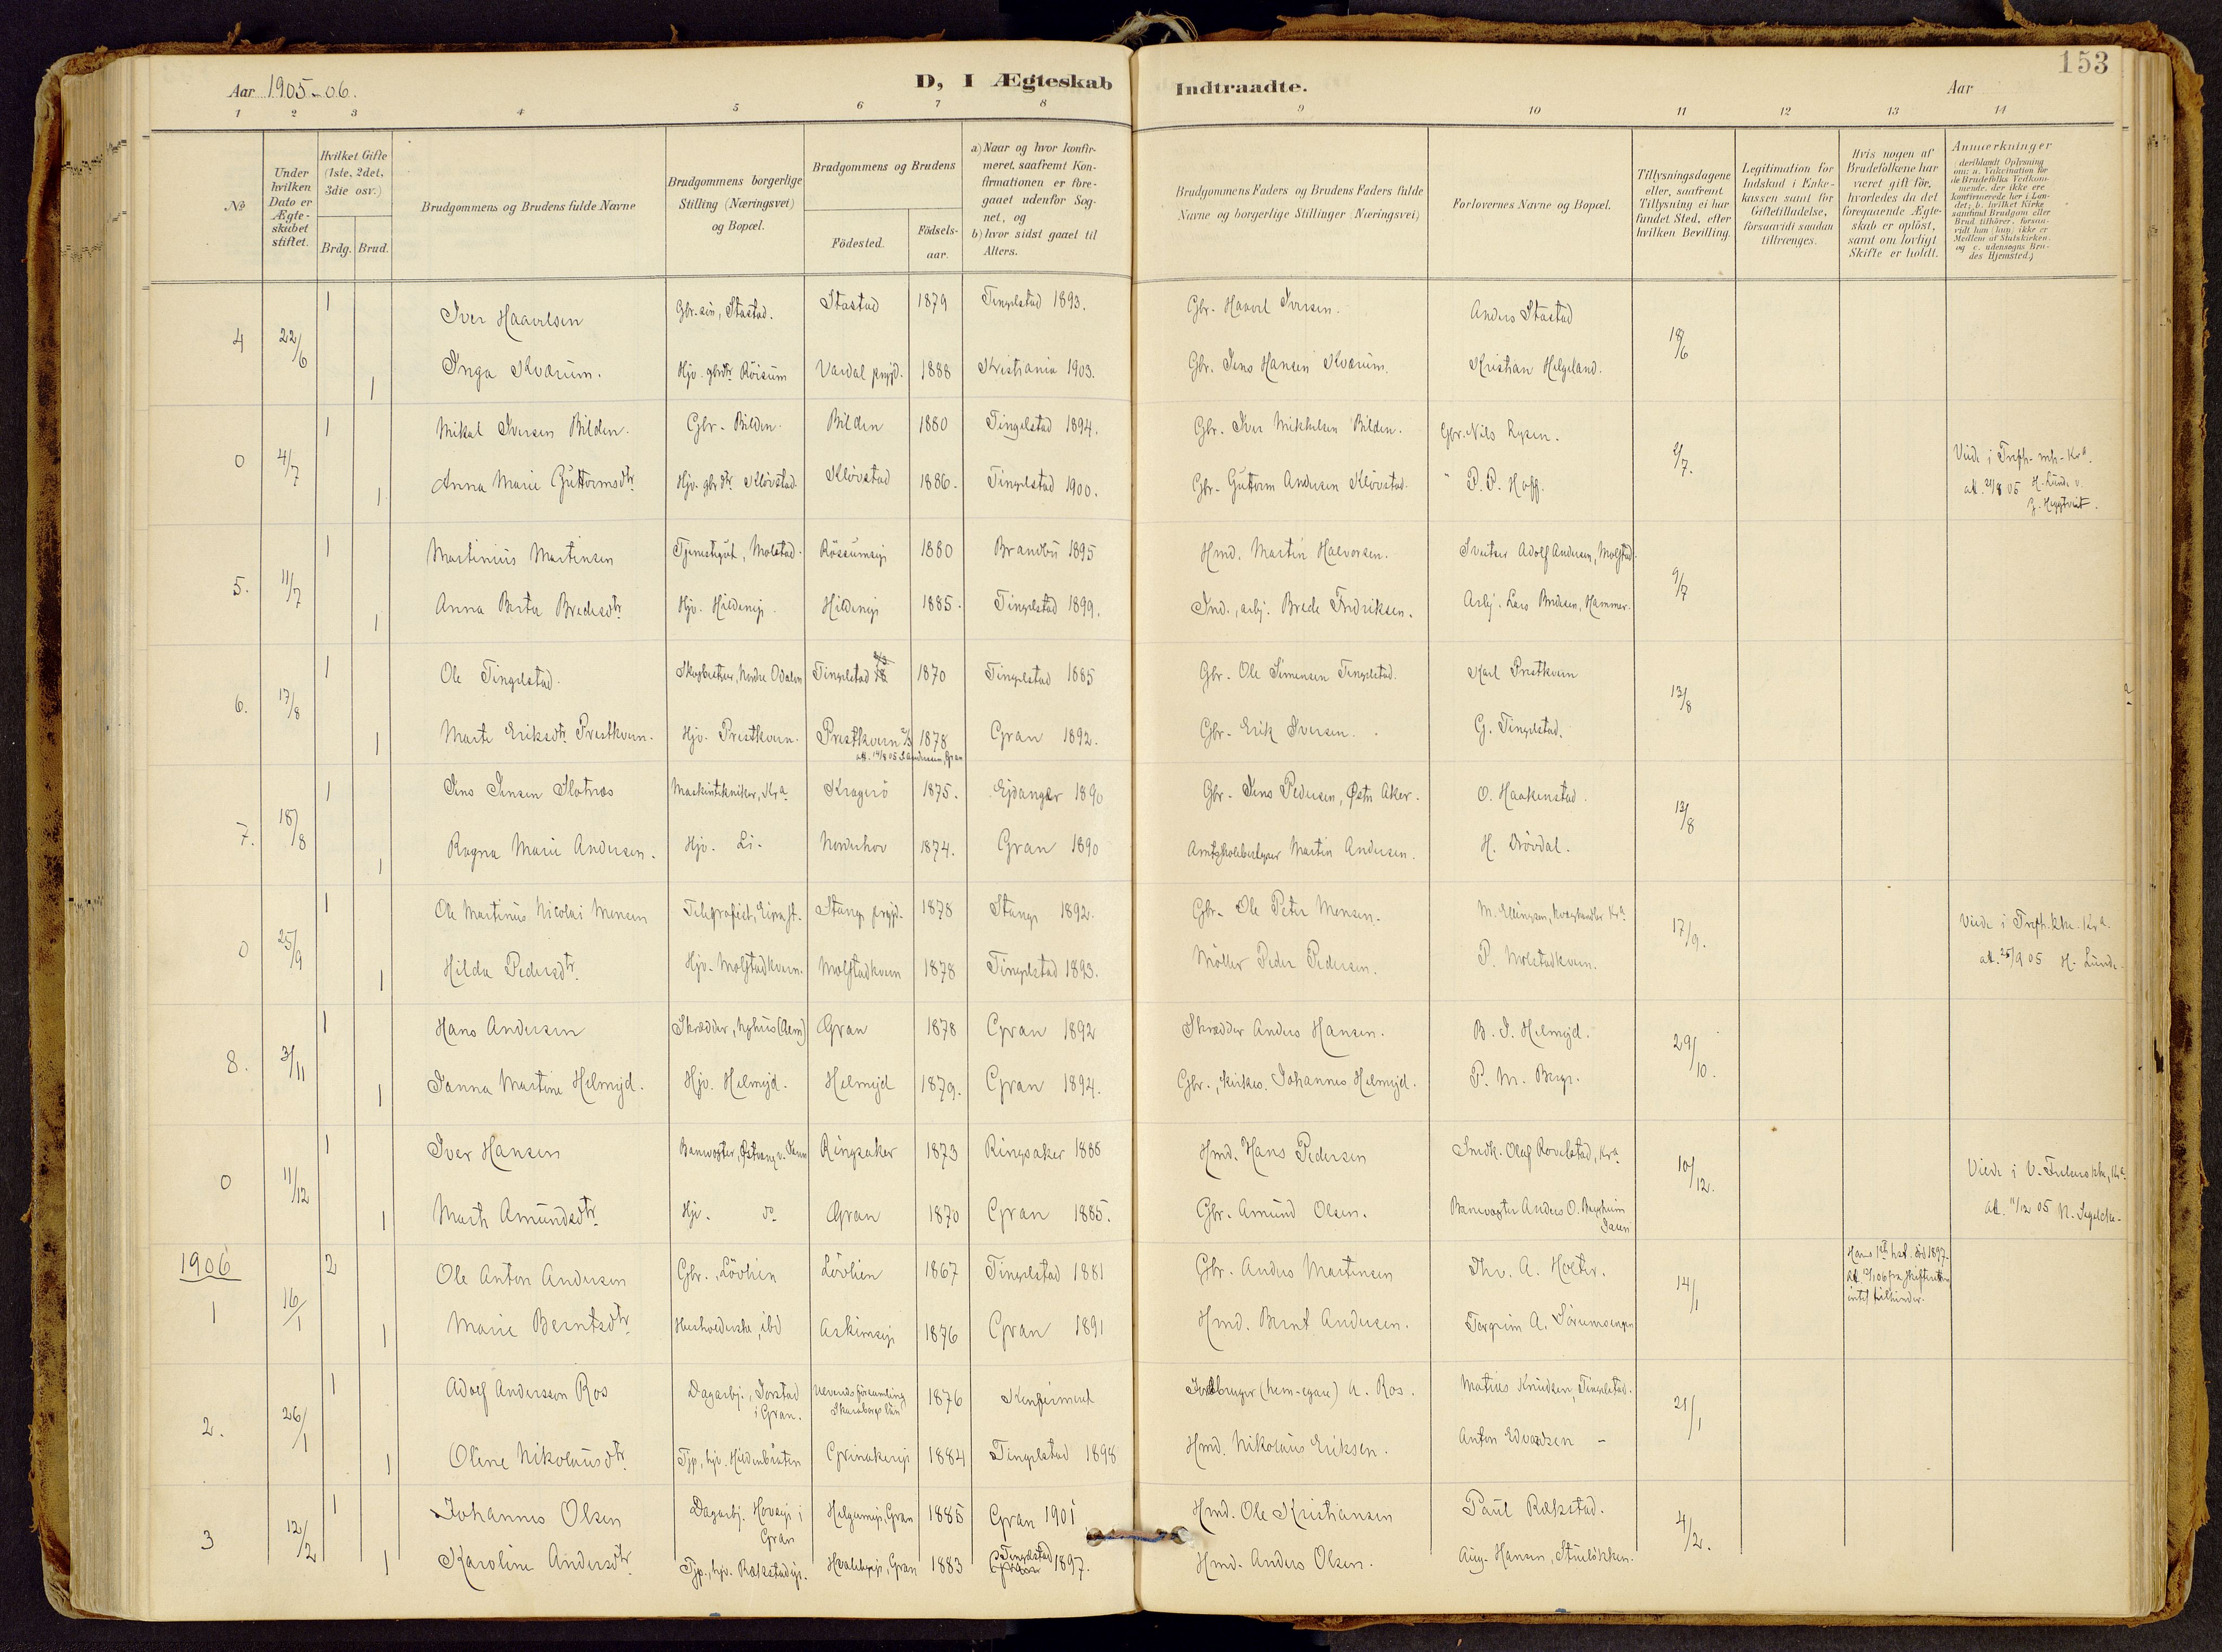 153
Aar 1905-06. D, I Ægteskab Indtraadte. Aar
1 2 3 4 5 6 7 8 9 10 11 12 13 14
No
Under hvilken Dato er Ægteskabet stiftet.
Hvilket Gifte (1ste, 2det, 3die osv.)
Brdg. Brud.
Brudgommens og Brudens fulde Navne
Brudgommens borgerlige Stilling (Næringsvei) og Bopæl.
Brudgommens og Brudens
Födested. Födselsaar.
a) Naar og hvor konfirmeret, saafremt Konfirmationen er foregaaet udenfor Sognet, og
b) hvor sidst gaaet til Alters.
Brudgommens Faders og Brudens Faders fulde Navne og borgerlige Stillinger (Næringsvei)
Forlovernes Navne og Bopæl.
Tillysningsdagene eller, saafremt Tillysning ei har fundet Sted, efter hvilken Bevilling.
Legitimation for Indskud i Enkekassen samt for Giftetilladelse, forsaavidt saadan tiltrænges.
Hvis nogen af Brudefolkene har været gift för, hvorledes da det foregaaende Ægteskab er oplöst, samt om lovligt Skifte er holdt.
Anmærkninger (deriblandt Oplysning om: a. Vakcination for de Brudefolks Vedkommende, der ikke ere konfirmerede her i Landet; b. hvilket Kirkesamfund Brudgom eller Brud tilhörer, forsaavidt han (hun) ikke er Medlem af Statskirken, og c. udensogns Brudes Hjemsted.)
4 22/6 1 Iver Haavelsen Gbr. sön, Stastad. Stastad 1879 Tingelstad 1893. Gbr. Haavel Iversen. Anders Stastad 18/6
1 Inga Kværum. Hjv. gbrdtr. Röisum Vardal prgjd. 1888 Kristiania 1903. Gbr. Jens Hansen Kværum. Kristian Helgeland.
0 4/7 1 Mikal Iversen Bilden. Gbr. Bilden. Bilden 1880 Tingelstad 1894. Gbr. Iver Mikkelsen Bilden. Gbr. Nils Rysen. 2/7.
1 Anna Marie Guttormsdtr. Hjv. gbrdtr. Klövstad. Klövstad 1886. Tingelstad 1900. Gbr. Guttorm Andersen Klövstad. " P. P. Hoff.
Viede i Trefh. mh-Kra.
att. 21/8 05 H. Lunde v.
Z. Heggtveit.
5. 11/7 1 Martinius Martinsen Tjenestgut, Molstad. Rössumeji 1880 Brandbu 1895 Hmd. Martin Halvorsen. Sveitser Adolf Andersen, Molstad. 9/7
1 Anna Berta Bredesdtr. Hjv. Hildeneji. Hildeneji 1885. Tingelstad 1899. Ind., arbj. Brede Fredriksen. Arbj. Lars Bredesen, Hammer.
6. 17/8 1 Ole Tingelstad. Skogbestyrer, Nordre Odalen Tingelstad 1870 Tingelstad 1885 Gbr. Ole Simensen Tingelstad. Karl Prestkvern 13/8
1 Marte Eriksdtr. Prestkvern. Hjv. Prestkvern. Prestkvern 1878 Gran 1892. Gbr. Erik Iversen. G. Tingelstad.
att. 14/8 05 S. Andersen, Gran
7. 18/8 1 Jens Jensen Slotnæs Maskintekniker, Kra. Kragerö 1875. Ejdanger 1890 Gbr. Jens Pedersen, Østre Aker. O. Haakenstad. 13/8
1 Ragna Marie Andersen. Hjv. Li. Norderhov 1874. Gran 1890 Amtskolebestyrer Martin Andersen. H. Dövdal.
0 25/9 1 Ole Martinus Nicolai Monsen Telegrafist, Eina st. Stange prgjd. 1878 Stange 1892. Gbr. Ole Peter Monsen. M. Ellingsen, Kra. 17/9.
1 Hilda Pedersdtr. Hjv. Molstadkvern. Molstadkvern 1878 Tingelstad 1893. Möller Peder Pedersen. P. Molstadkvern.
Viede i Trefh. kke. Kra.
att. 25/9 05 H. Lunde.
8. 3/11 1 Hans Andersen Skrædder, Nyhus (Alm) Gran 1878 Gran 1892 Skrædder Anders Hansen. B. J. Helmejd. 29/10.
1 Janna Martine Helmejd. Hjv. Helmejd. Helmejd 1879. Gran 1894. Gbr., kirkes. Johannes Helmejd. P. M. Berge.
0 11/12 1 Iver Hansen Banevogter, Ringsaker 1873 Ringsaker 1888 Hmd. Hans Pedersen Snedk. Olaf Rovelstad, Kra. 10/12.
1 Marte Amundsdtr. Hjv. do Gran 1870 Gran 1885. Gbr. Amund Olsen. Banevogter Anders O. Bergheim Jaren
Viede i V. Frikerskke, Kra.
att. 11/12 05 N.
1906
1 16/1 2 Ole Anton Andersen Gbr., Lövlien Lövlien 1867 Tingelstad 1881 Gbr. Anders Martinsen Thv. A. Holter. 14/1
Hans 1ste hst. död 1897.
att. 12/1 06 fra skifteretten
intet til hinder.
1 Marie Berntsdtr. Husholderske, ibd Askimeji 1876 Gran 1891 Hmd. Bernt Andersen. Torgrim A. Sörumsengen
2. 26/1 1 Adolf Andersson Ros Dagarbj., Jorstad i Gran. Ueverods församling Skaraborgs län 1876 Konfirmeret Jordbruger (hem-egare) A. Ros. Matias Knudsen, Tingelstad. 21/1
1 Oline Nikolausdtr. Tjp., hjv. Hildenbråten Grinakereji 1884 Tingelstad 1898 Hmd. Nikolaus Eriksen. Anton Edvardsen -
3 12/2 1 Johannes Olsen Dagarbj. Hovseji i Gran Helgumeji, Gran 1885 Gran 1901 Hmd. Ole Kristiansen Paul Rækstad. 4/2.
1 Karoline Andersdtr. Tjp., hjv. Rækstadeji. Hvalebyeji, Gran 1883 Tingelstad 1897. Hmd. Anders Olsen. Aug. Hansen, Stuelökken.